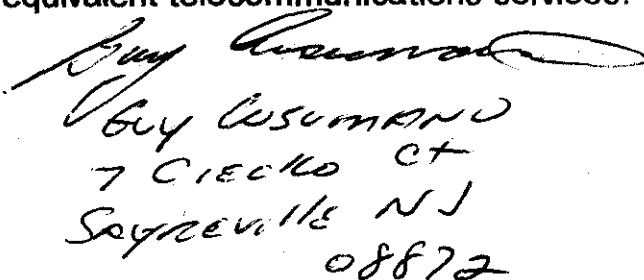 equivalent telecommunications services.
Guy Cusumano
GUY CUSUMANO
7 CIECKO Ct
SAYREVIllE NJ
08872